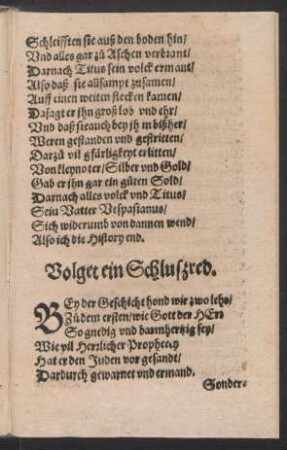 Schleifften sie auß den boden hin/
Vnd alles gar zů Aschen verbrant/
Darnach Titus sein volck ermant/
Also daß sie allsampt zusamen/
Auff einen weiten flecken kamen/
Da sagt er ihn groß lob vnd ehr/
Vnd daß sie auch bey jhm bißher/
Weren gestanden vnd gestritten/
Darzů vil gfärligkeyt erlitten/
Von kleynoter/ Silber vnd Gold/
Gab er ihn gar ein gůten Sold/
Darnach alles volck vnd Titus/
Sein Vatter Vespasianus/
Sich widerumb von dannen wend/
Also ich die History end.
Volget ein Schluszred.
BEy der Geschicht hond wir zwo lehr/
Zů dem ersten/ wie Gott der HErr
So gnedig vnd barmhertzig sey/
Wie vil Herrlicher Prophecey
Hat er den Juden vor gesandt/
Dardurch gewarnet vnd ermand.
Sonder-